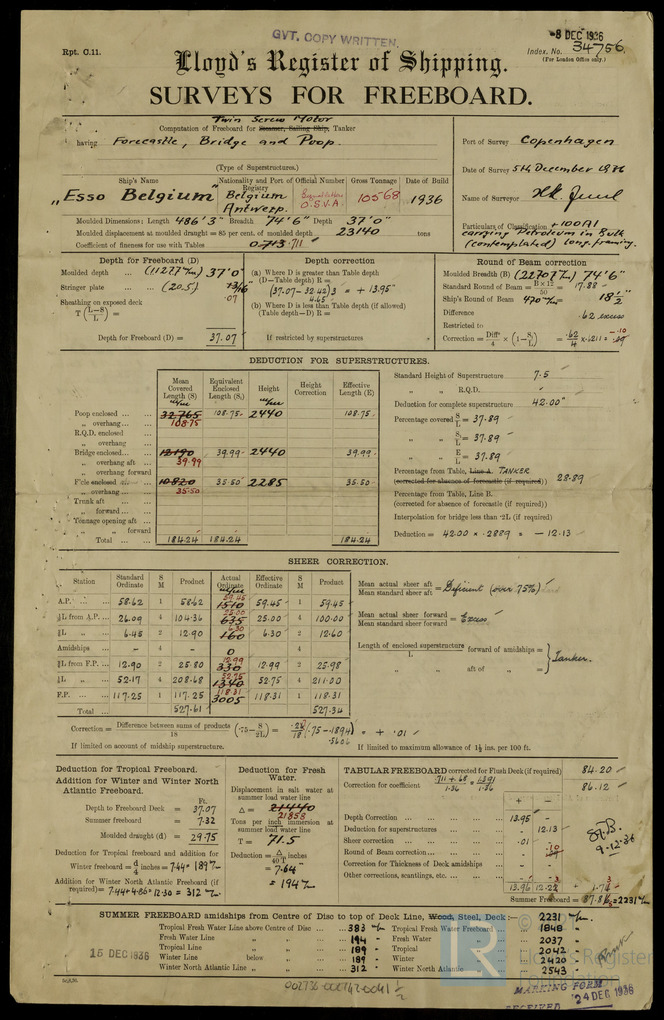 GVT. COPY WRITTEN.
-8 DEC 1936
Rpt. C.11.
Index. No. 34756
(For London Office only.)
Lloyd's Register of Shipping.
SURVEYS FOR FREEBOARD.
Twin Screw Motor
Computation of Freeboard for Steamer, Sailing Ship, Tanker
having Forecastle, Bridge and Poop.
(Type of Superstructures.)
Port of Survey Copenhagen
Date of Survey 5th December 1936
Name of Surveyor
Particulars of Classification +100A1
carrying Petroleum in Bulk
(contemplated) long. framing.
Ship's Name
Nationality and Port of Registry
Official Number
Gross Tonnage
Date of Build
"Esso Belgium"
Belgium
Antwerp.
O.S.V.A.
10568
1936
Moulded Dimensions: Length 486'3" Breadth 74'6" Depth 37'0"
Moulded displacement at moulded draught = 85 per cent. of moulded depth 23140 tons
Coefficient of fineness for use with Tables 0.713 .711
Depth for Freeboard (D)
Moulded depth ... (11277 m/m) 37'0"
Stringer plate ... (20.5)
.07
Sheathing on exposed deck
T (L-S/L) =
Depth for Freeboard (D) = 37.07
Depth correction
(a) Where D is greater than Table depth
(D-Table depth) R =
(37.07-32.42) 3 = + 13.95"
4.65
(b) Where D is less than Table depth (if allowed)
(Table depth-D) R =
If restricted by superstructures
Round of Beam correction
Moulded Breadth (B) (22707 m/m) 74'6"
Standard Round of Beam = B×12/50 = 17.88
Ship's Round of Beam = 470 m/m = 18½"
Difference .62 excess
Restricted to
Correction = Diff/4 × (1-S/L) = .62/4 × .6211 = -.10
DEDUCTION FOR SUPERSTRUCTURES.
Mean Covered Length (S)
Equivalent Enclosed Length (S₁)
Height
Height Correction
Effective Length (E)
Poop enclosed 32765 108.75 108.75 2440 108.75
„ overhang
R.Q.D. enclosed
„ overhang
Bridge enclosed 12190 39.99 39.99 2440 39.99
„ overhang aft
„ overhang forward
F'cle enclosed 10820 35.50 35.50 2285 35.50
„ overhang
Trunk aft
„ forward
Tonnage opening aft
„ „ forward
Total 184.24 184.24 184.24
Standard Height of Superstructure 7.5
„ „ R.Q.D.
Deduction for complete superstructure 42.00"
Percentage covered S/L = 37.89
„ „ S₁/L = 37.89
„ „ E/L = 37.89
Percentage from Table, Line A. TANKER
(corrected for absence of forecastle (if required)) 28.89
Percentage from Table, Line B.
(corrected for absence of forecastle (if required))
Interpolation for bridge less than ·2L (if required)
Deduction = 42.00 × .2889 = - 12.13
SHEER CORRECTION.
Station
Standard Ordinate
S M
Product
Actual Ordinate
Effective Ordinate
S M
Product
A.P. 58.62 1 58.62 59.45 1510 59.45 1 59.45
⅙L from A.P. 26.09 4 104.36 25.00 635 25.00 4 100.00
⅓L „ 6.45 2 12.90 6.30 160 6.30 2 12.60
Amidships - 4 - 0 4
⅓L from F.P. 12.90 2 25.80 12.99 330 12.99 2 25.98
⅙L „ 52.17 4 208.68 52.75 1340 52.75 4 211.00
F.P. 117.25 1 117.25 118.31 3005 118.31 1 118.31
Total 527.61 527.34
Mean actual sheer aft / Mean standard sheer aft = Deficient (over 75%)
Mean actual sheer forward / Mean standard sheer forward = Excess
Length of enclosed superstructure / L forward of amidships =
„ „ aft of „ =
Tanker.
Correction = Difference between sums of products / 18 (·75 - S/2L) = (.75-.1894) = + .01
.5606
If limited on account of midship superstructure.
If limited to maximum allowance of 1½ ins. per 100 ft.
Deduction for Tropical Freeboard.
Addition for Winter and Winter North Atlantic Freeboard.
Ft.
Depth to Freeboard Deck = 37.07
Summer freeboard = 7.32
Moulded draught (d) = 29.75
Deduction for Tropical freeboard and addition for
Winter freeboard = d/4 inches = 7.44 = 189 m/m
Addition for Winter North Atlantic Freeboard (if
required) = 7.44+4.86 = 12.30 = 312 m/m
Deduction for Fresh Water.
Displacement in salt water at
summer load water line
Δ = 21440
21858
Tons per inch immersion at
summer load water line
T = 71.5
Deduction = Δ/40T inches
= 7.64"
= 194 m/m
TABULAR FREEBOARD corrected for Flush Deck (if required) 84.20
Correction for coefficient .711+.68/1.36 = 1.391/1.36 86.12
+ -
Depth Correction 13.95
Deduction for superstructures 12.13
Sheer correction .01
Round of Beam correction .10
Correction for Thickness of Deck amidships
Other corrections, scantlings, etc.
13.96
Summer Freeboard = = 2231 m/m
9-12-36
SUMMER FREEBOARD amidships from Centre of Disc to top of Deck Line, Wood, Steel, Deck:- 2231 m/m
Tropical Fresh Water Line above Centre of Disc 383 m/m
Fresh Water Line „ „ 194
Tropical Line „ „ 189
Winter Line below „ „ 189
Winter North Atlantic Line „ „ 312
Tropical Fresh Water Freeboard 1848
Fresh Water „ 2037
Tropical „ 2042
Winter „ 2420
Winter North Atlantic „ 2543
15 DEC 1936
002736-002742-0041½
LR
Lloyd's Register
Foundation
MARKING FORM
RECEIVED 24 DEC 1936